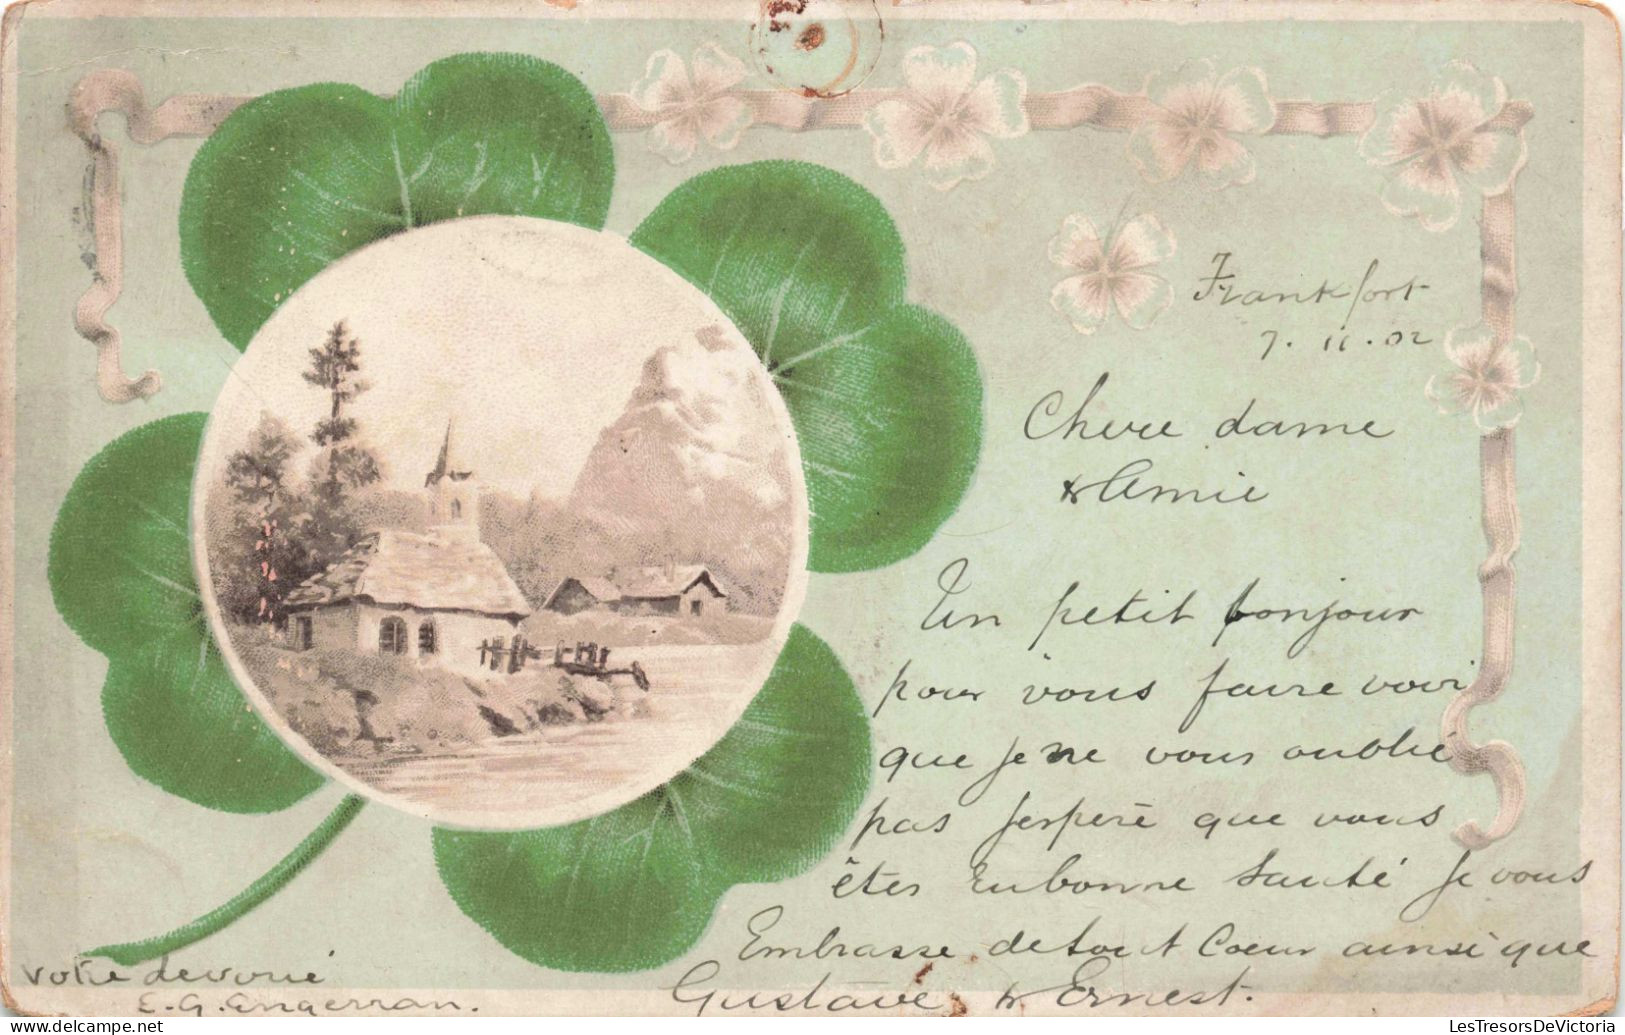 Frankfort
7. 11. 02
Chere dame
& Amie
Un petit bonjour
pour vous faire voir
que je ne vous oublié
pas jespere que vous
êtes en bonne santé Je vous
Embrasse de tout Coeur ainsi que
Gustave & Ernest.
votre devoué
E. G. Engerran.
LesTresorsDeVictoria